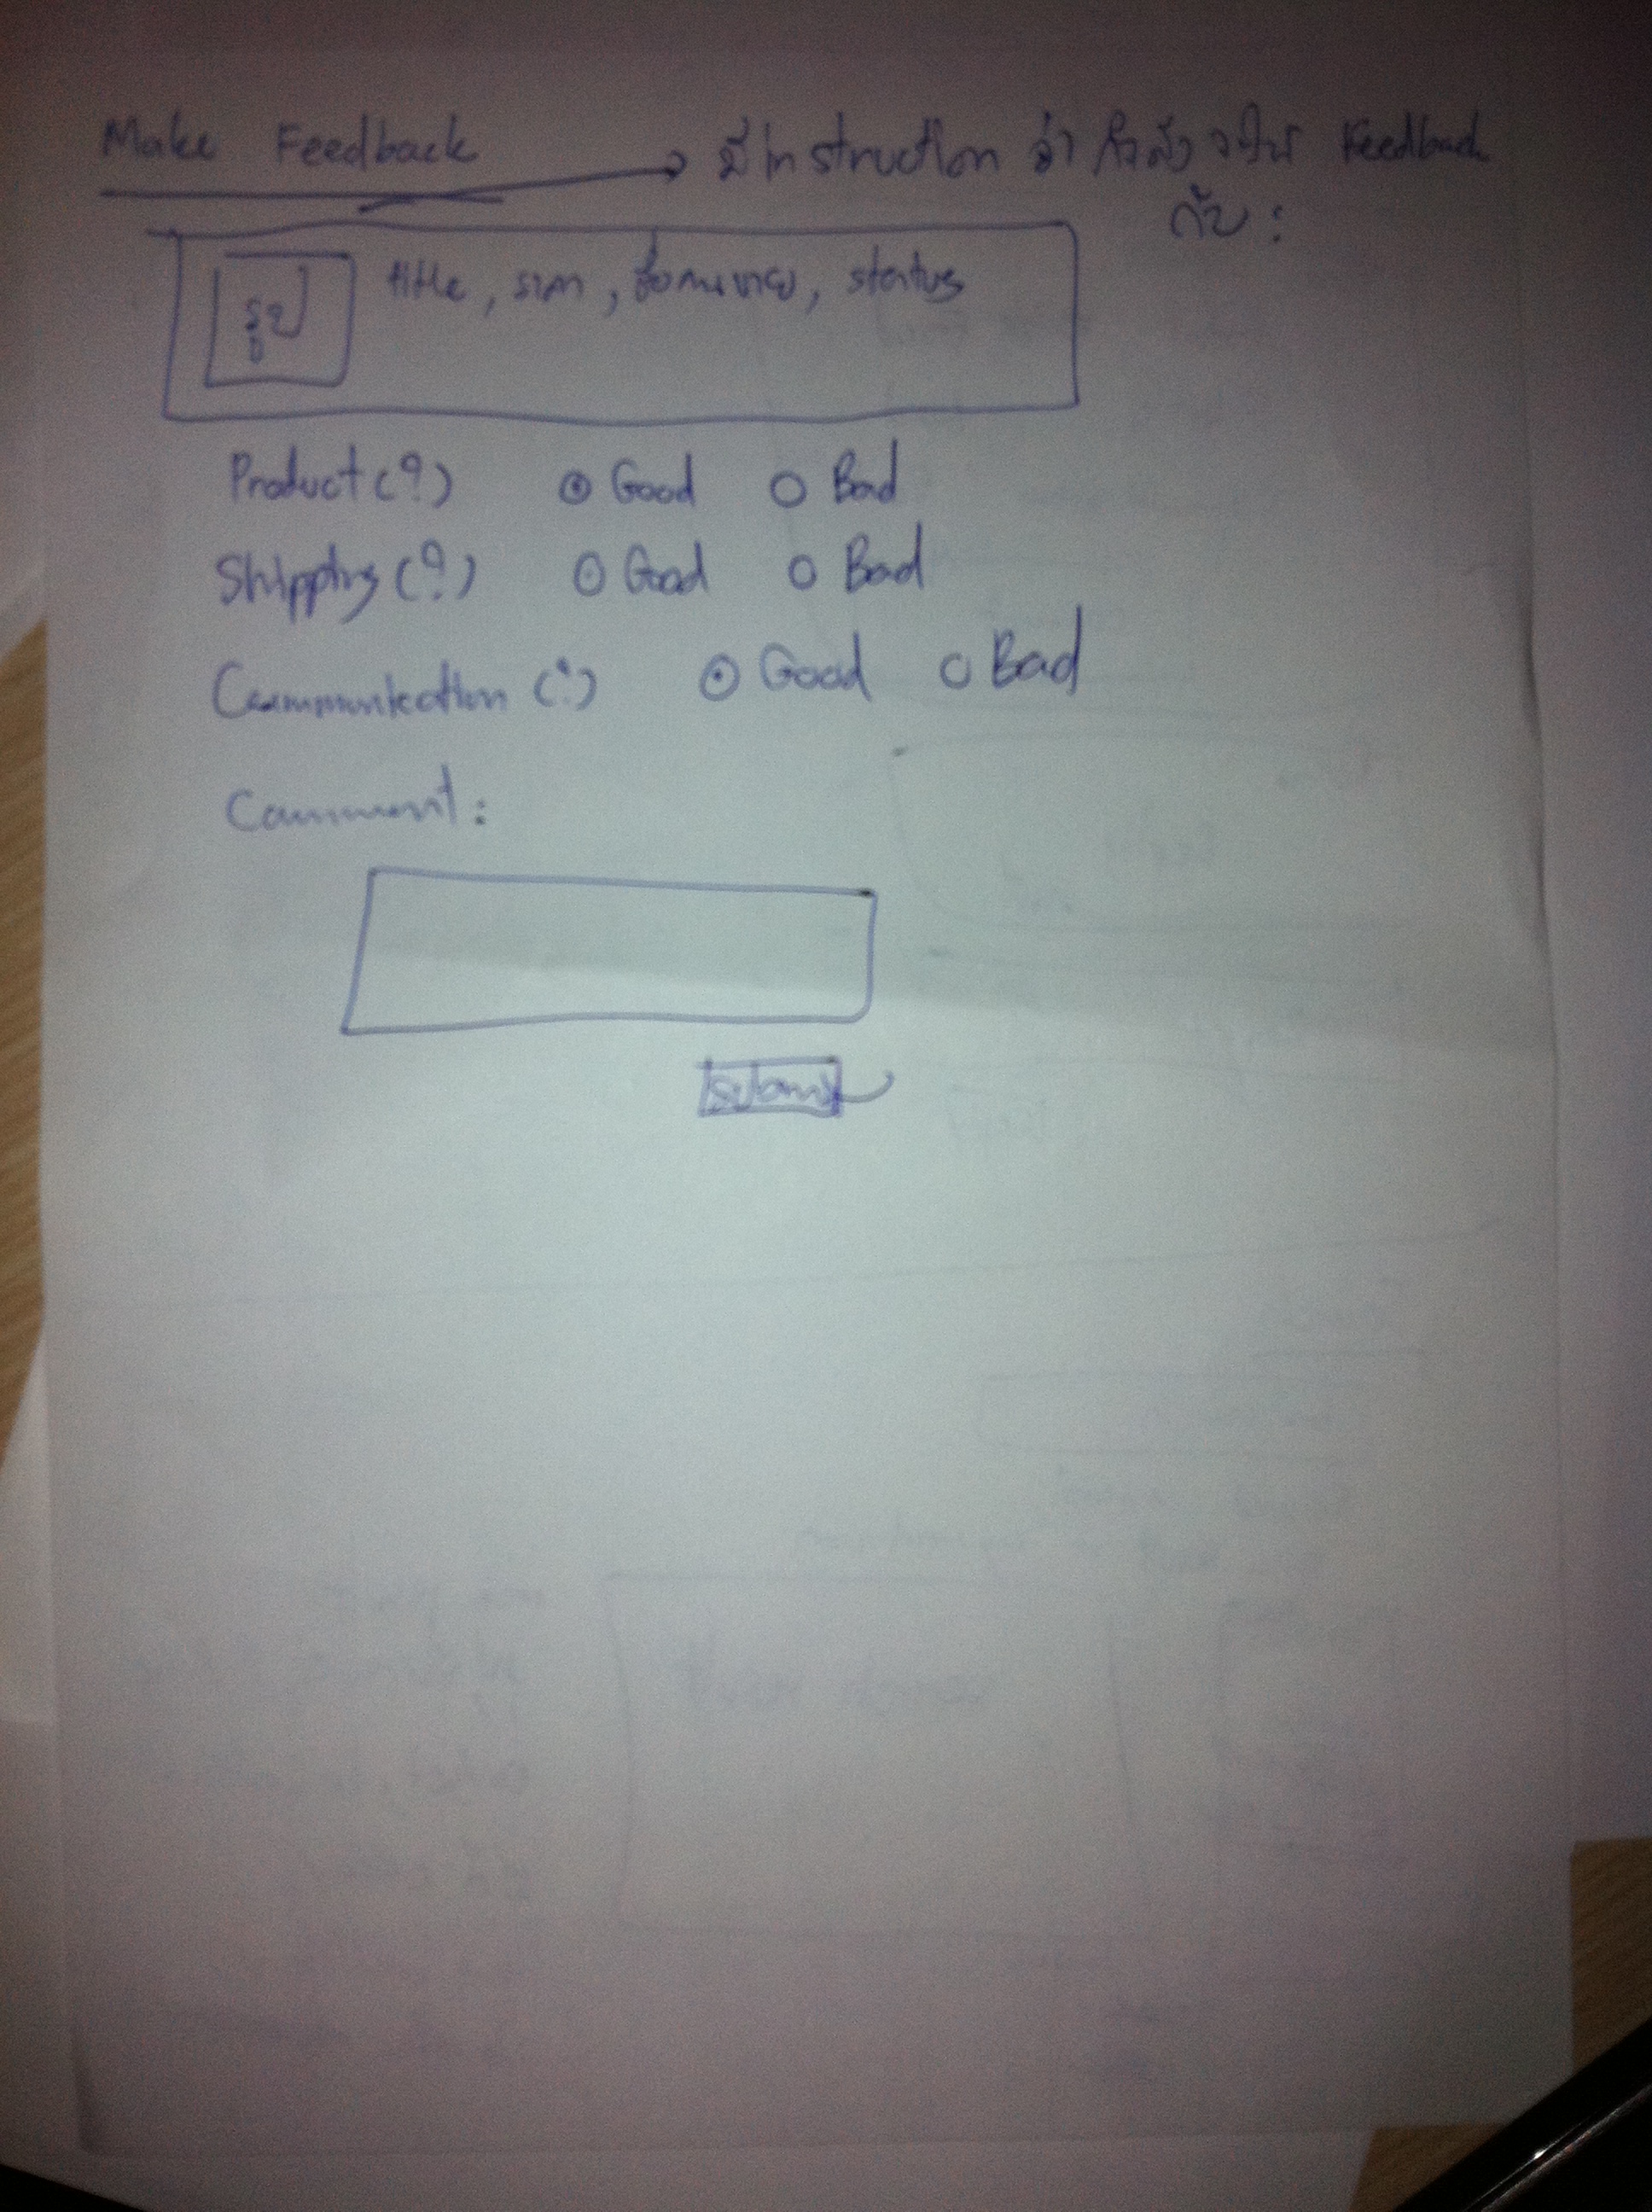 Make Feedback → มี Instruction ว่า กำลังจะให้ Feedback
กับ :
รูป
title, ราคา, ชื่อคนขาย, status
Product (?) ⊙ Good ○ Bad
Shipping (?) ⊙ Good ○ Bad
Communication (?) ⊙ Good ○ Bad
Comment :
Submit